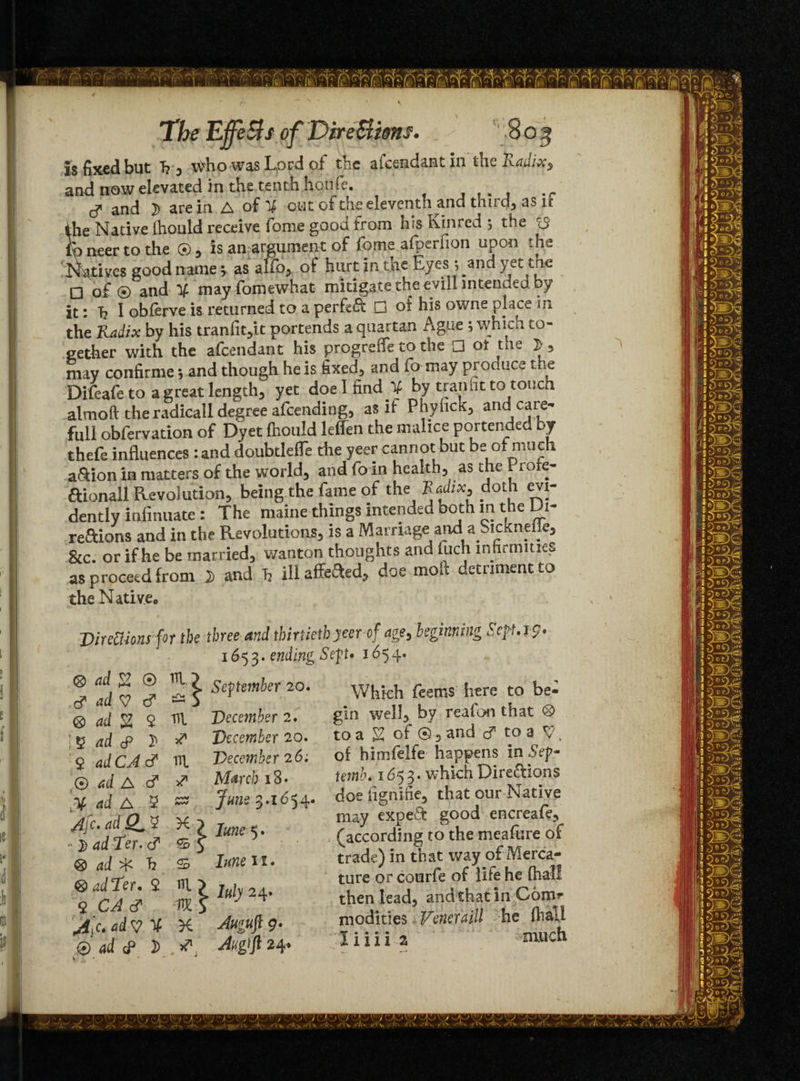 The Effects of Directions. 803
is fixed but ♄, who was Lord of the ascendant in the Radix,
and now elevated in the tenth house.
♂ and ☽ are in △ of ♃ out of the eleventh and third, as if
the Native should receive some good from his Kinred; the ☋
so neer to the ☉, is an argument of some aspersion upon the
Natives good name; as also, of hurt in the Eyes; and yet the
□ of ☉ and ♃ may somewhat mitigate the evill intended by
it: ♄ I observe is returned to a perfect □ of his owne place in
the Radix by his transit, it portends a quartan Ague; which to-
gether with the ascendant his progresse to the □ of the ☽,
may confirme; and though he is fixed, and so may produce the
Disease to a great length, yet doe I find ♃ by transit to touch
almost the radicall degree ascending, as if Physick, and care-
full observation of Dyet should lessen the malice portended by
these influences: and doubtlesse the yeer cannot but be of much
action in matters of the world, and so in health, as the Profe-
ctionall Revolution, being the same of the Radix, doth evi-
dently insinuate: The maine things intended both in the Di-
rections and in the Revolutions, is a Marriage and a Sicknesse,
&c. or if he be married, wanton thoughts and such infirmities
as proceed from ☽ and ♄ ill affected, doe most detriment to
the Native.
Directions for the three and thirtieth yeer of age, beginning Sept. 19.
1653. ending Sept. 1654.
⊗ ad ♎ ☉ ♏ } September 20.
♂ ad ⚺ ♂ ♎
⊗ ad ♎ ♀ ♏ December 2.
☿ ad ☍ ☽ ♐ December 20.
♀ ad CA ♂ ♏ December 26.
☉ ad △ ♂ ♐ March 18.
♃ ad △ ☿ ♒ June 3. 1654.
Asc. ad Q. ☿ ♓ } Iune 5.
☽ ad Ter. ♂ ♋
⊗ ad ⚹ ♄ ♋ Iune 11.
⊗ ad Ter. ♀ ♏ } Iuly 24.
♀ CA ♂ ♍
Asc. ad ⚺ ♃ ♓ August 9.
☉ ad ☍ ☽ ♐ Augist 24.
Which seems here to be-
gin well, by reason that ⊗
to a ♎ of ☉, and ♂ to a ⚺
of himselfe happens in Sep-
temb. 1653. which Directions
doe signifie, that our Native
may expect good encrease,
(according to the measure of
trade) in that way of Merca-
ture or course of life he shall
then lead, and that in Com-
modities Veneraill he shall
Iiiii 2 much